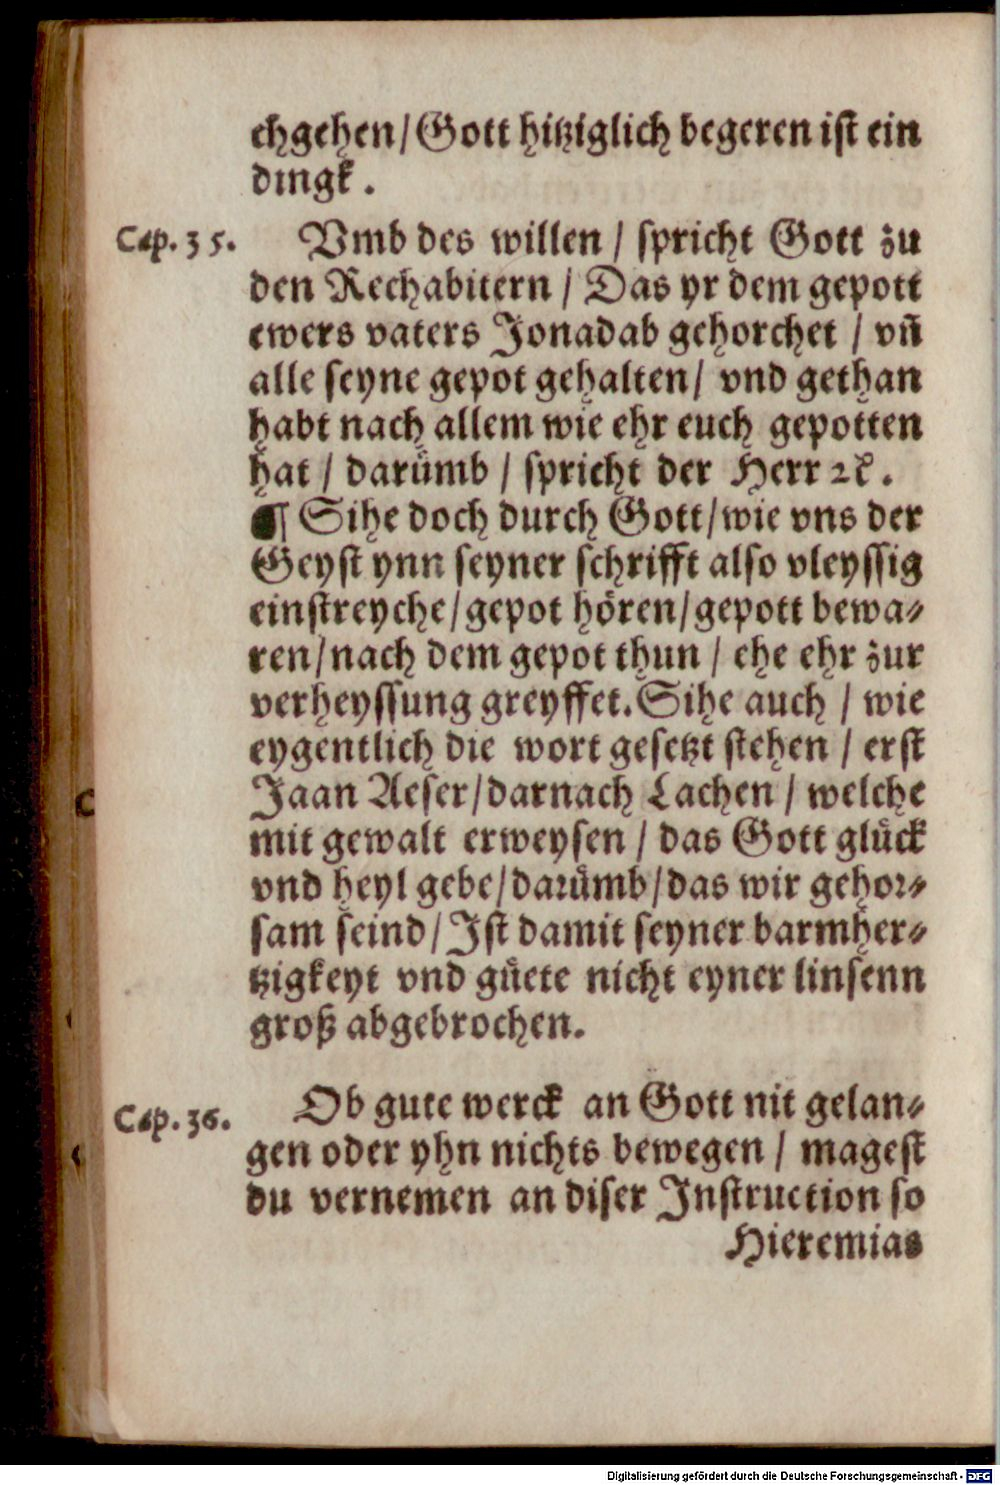 ehgehen/Gott hitziglich begeren ist ein
dingk.
Cap. 35.
Vmb des willen / spricht Gott zu
den Rechabitern / Das yr dem gepott
ewers vaters Jonadab gehorchet / vñ
alle seyne gepot gehalten/ vnd gethan
habt nach allem wie ehr euch gepotten
hat / darümb / spricht der Herr ꝛc.
¶ Sihe doch durch Gott/wie vns der
Geyst ynn seyner schrifft also vleyssig
einstreyche/gepot hören/gepott bewa-
ren/nach dem gepot thun / ehe ehr zur
verheyssung greyffet. Sihe auch / wie
eygentlich die wort gesetzt stehen / erst
Jaan Aeser/darnach Lachen / welche
mit gewalt erweysen / das Gott glück
vnd heyl gebe/darümb/das wir gehor-
sam seind/Ist damit seyner barmher-
tzigkeyt vnd güete nicht eyner linsenn
groß abgebrochen.
Cap. 36.
Ob gute werck an Gott nit gelan-
gen oder yhn nichts bewegen / magest
du vernemen an diser Instruction so
Hieremias
Digitalisierung gefördert durch die Deutsche Forschungsgemeinschaft - DFG